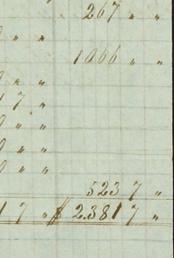 267 " "
" "
1066 " "
" "
7 "
" "
" "
" "
523 7 "
17 " $ 2381 7 "